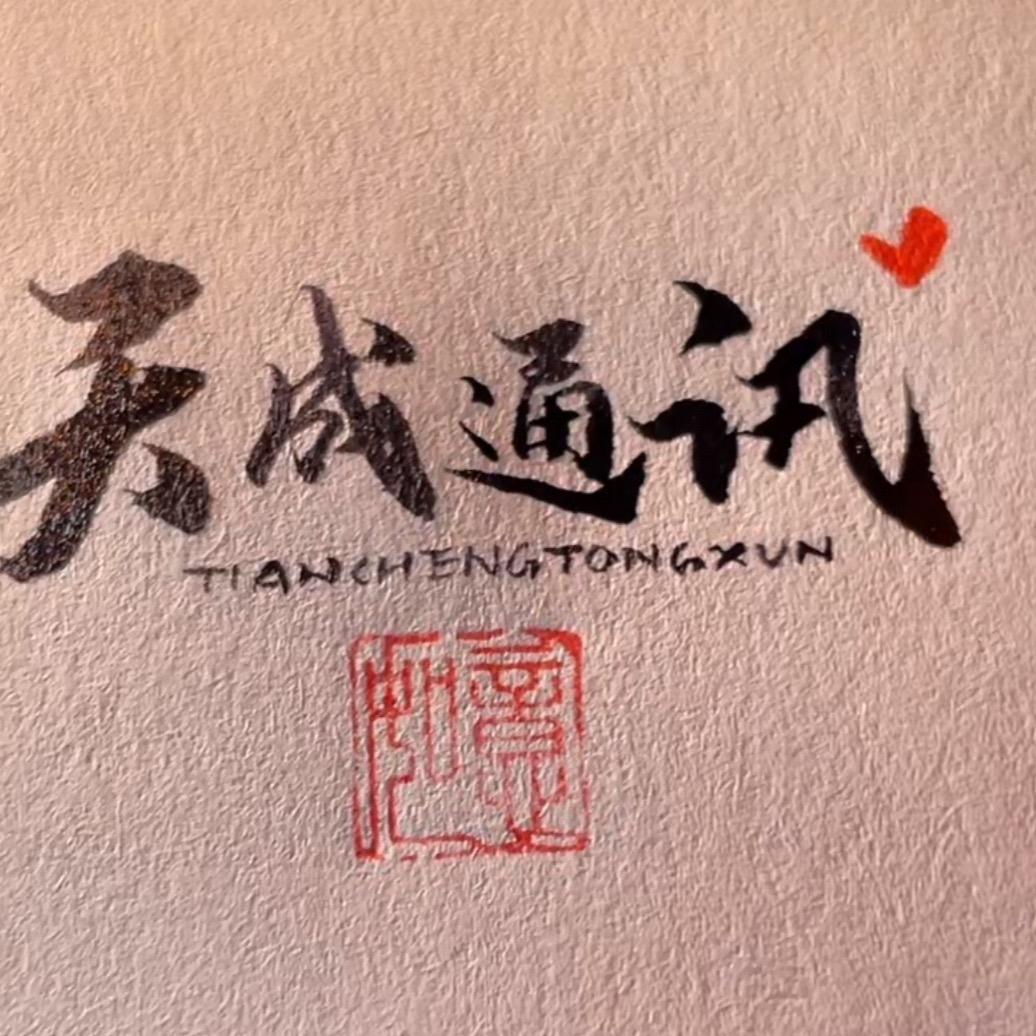 天成通讯
TIANCHENGTONGXUN